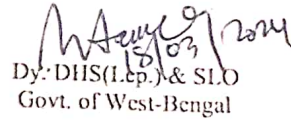 18/03/2024
Dy. DHS(Lep.) & SLO
Govt. of West-Bengal